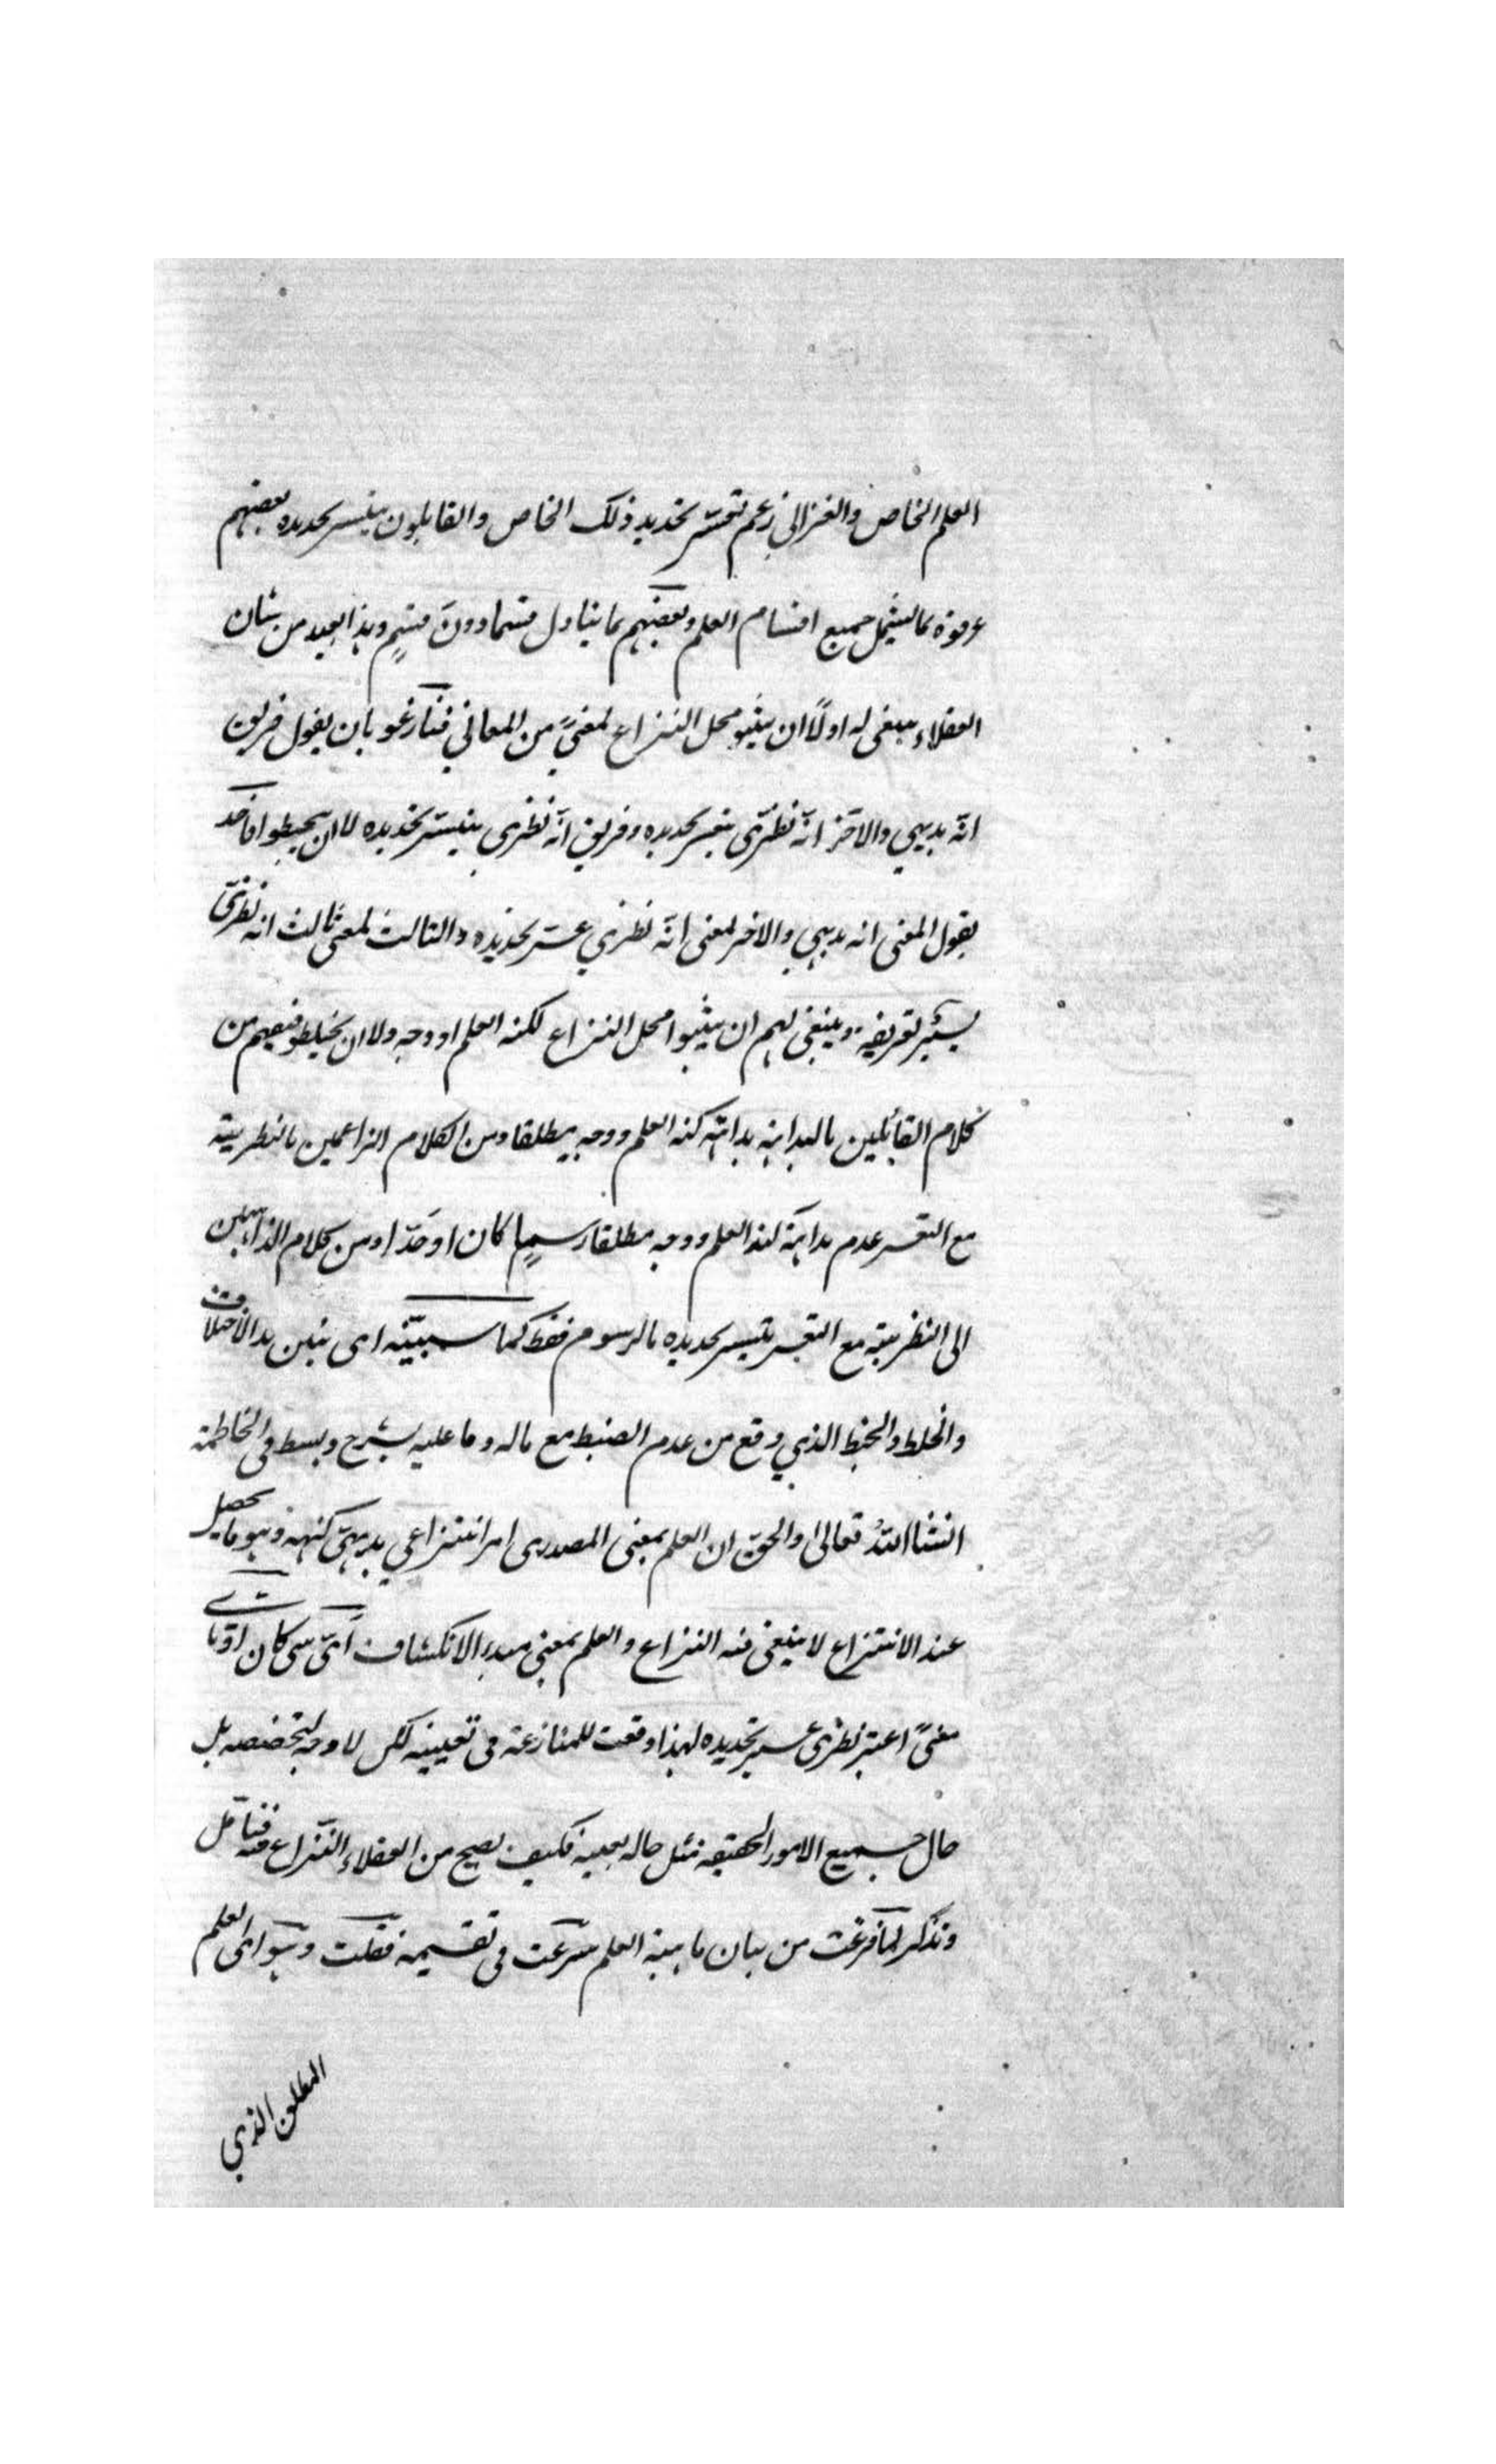 العلم الخاص والغزالى زعم تعسّر تحديد ذلك الخاص والقايلون بتيسر تحديده بعضهم
عرفوه بما يشمل جميع اقسام العلم وبعضهم بما يتناول قسما دون قسمٍ وهذا بعيد من شان
العقلاء ينبغى له اولاً ان يثبتو محل النزاع لمعنىً من المعاني فتنازعو بان يقول فريق
انّه بديهي والاخر انّه نظرّى يتعسر تحديده وفريق انّه نظرى يتيسّر تحديده لا ان يحبطوا فاحد
يقول لمعنى انه بديهي والاخر لمعنى انّه نظري عسّر تحديده والثالث لمعنى ثالث انه نظرىّ
يسير تعريفه وينبغى لهم ان يثبتوا محل النزاع لكنه العلم او وجهه ولا ان يخبلطو فيفهم من
كلام القائلين بالبداهة بداهته كنه العلم ووجهه مطلقا ومن الكلام الزاعمين بالنظريتة
مع التعسر عدم بداهة كنه العلم ووجهه مطلقا رسمٍا كان او حدّا ومن كلام الذاهبين
الى النظريتة مع التعسر بتيسر تحديده بالرسوم فقط كما سبيّنه اى يبين هذ الاختلاف
والخلط والخبط الذي وقع من عدم الضبط مع ماله وما عليه بشرح وبسط فى الخاطمة
انشاالله تعالى والحق ان العلم بمعنى المصدرى امر انتزاعي بديهىّ كنهه وهو ما يحصل
عند الانتزاع لا ينبغى فيه النزاع والعلم بمعنى مبدء الانكشاف اىّ شى كان او باى
معنىً اعتبر نظرى عسير تحديده لهذا وقعت للمنازعة فى تعيينه لكن لا وجه لتخصصه بل
حال جميع الامور الحقيقه مثل حاله بعينه فكيف يصح من العقلاء النّزاع فيه فتامّل
وتذكر لمّا فرغت من بيان ماهية العلم شرعت فى تقسيمه فقلت وهو اى العلم
المطلق الذي